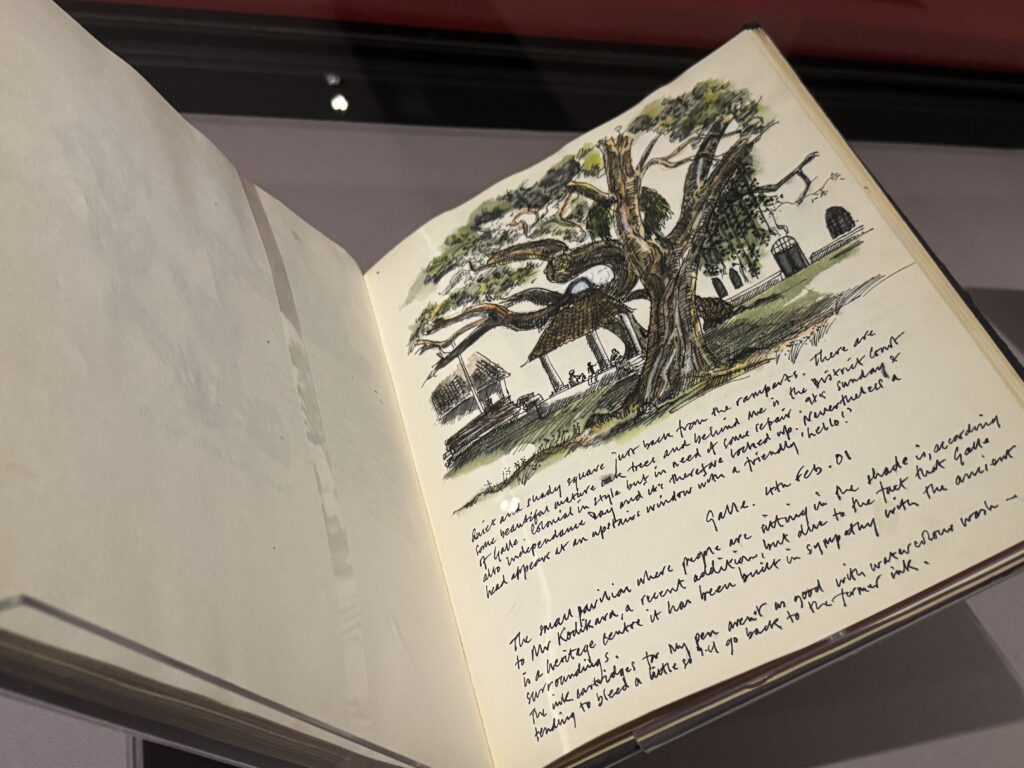 Quiet and shady square just back from the ramparts. There are
some beautiful mature trees and behind me is the District Court
of Galle. Colonial in style but in need of some repair. It's Sunday &
also Independance Day and it's therefore locked up. Nevertheless a
head appears at an upstairs window with a friendly 'hello!'
Galle. 4th Feb. 01
The small pavilion where people are sitting in the shade is, according
to Mr Kodikara, a recent addition but due to the fact that Galle
is a heritage centre it has been built in sympathy with the ancient
surroundings.
The ink cartridges for my pen aren't as good with watercolour wash –
tending to bleed a little so I'll go back to the former ink.